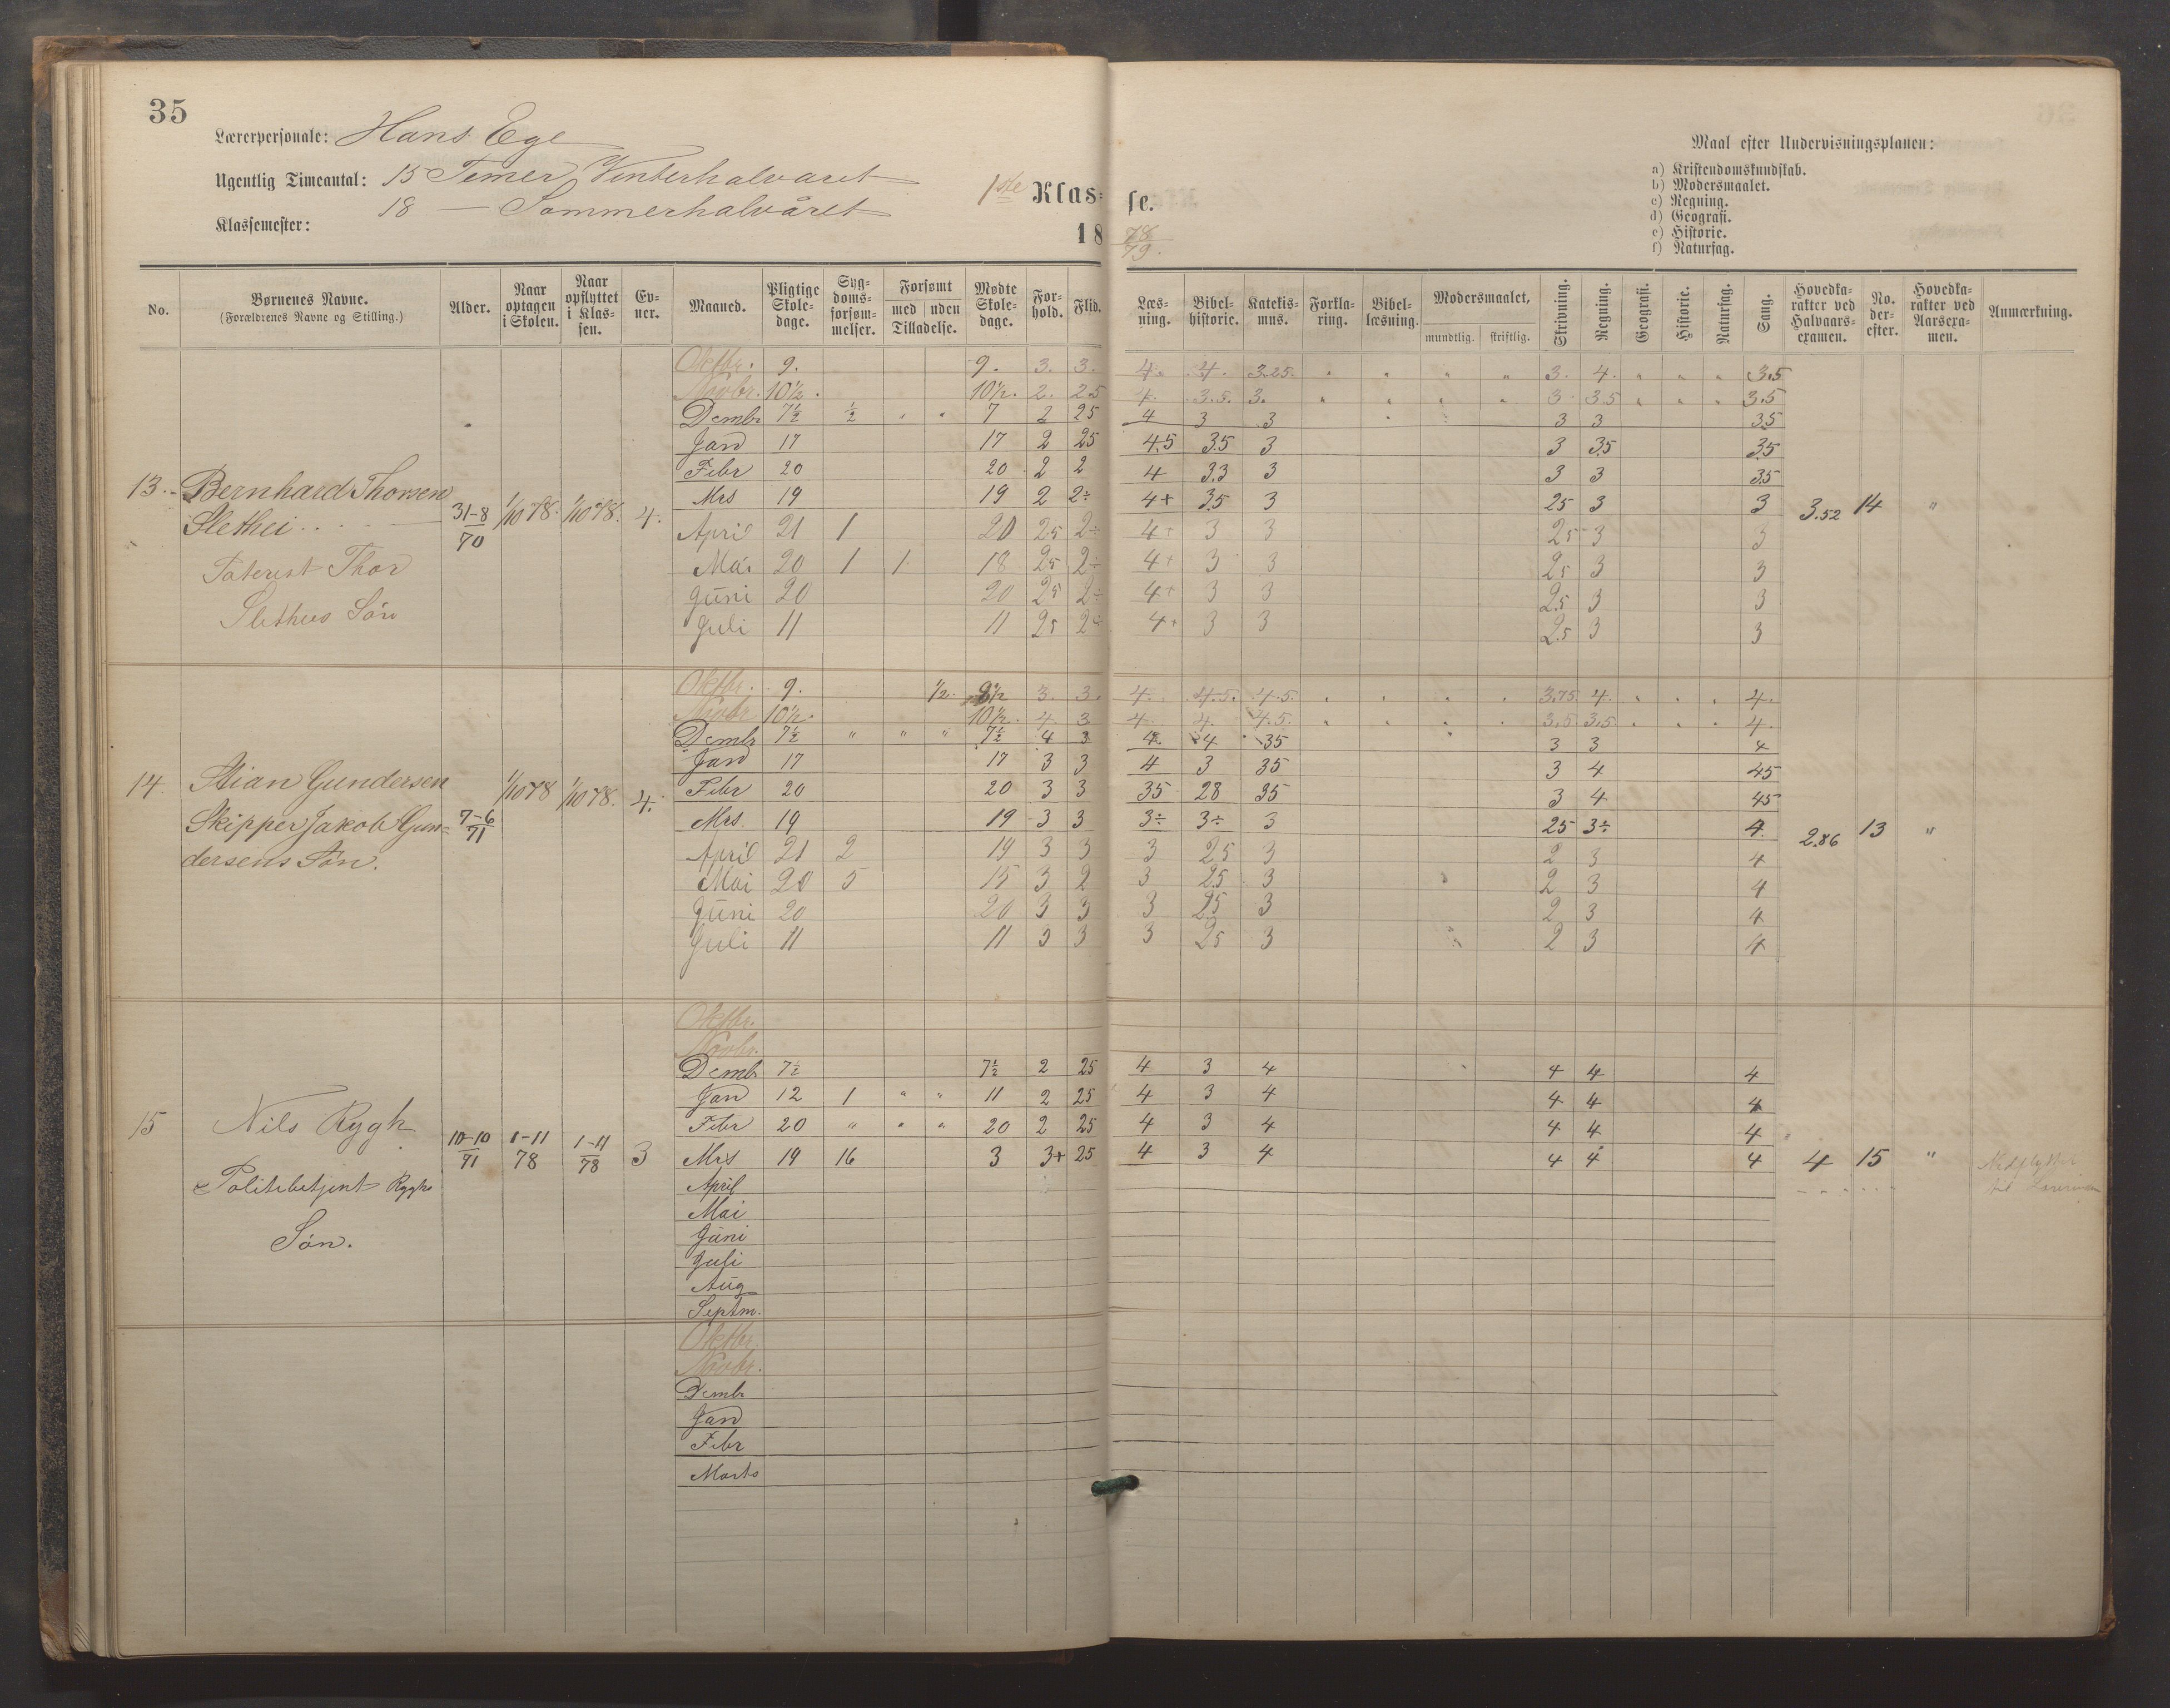 35
Lærerpersonale: Hans Ege
Ugentlig Timeantal: 15 Timer Vinterhalvaret
18 — Sommerhalvåret
Klassemester:
1ste Klas= se.
18 78/79.
Maal efter Undervisningsplanen:
a) Kristendomskundskab.
b) Modersmaalet.
c) Regning.
d) Geografi.
e) Historie.
f) Naturfag.
No. | Børnenes Navne. (Forældrenes Navne og Stilling.) | Alder. | Naar optagen i Skolen. | Naar opflyttet i Klassen. | Evner. | Maaned. | Pligtige Skoledage. | Sygdomsforsømmelser. | Forsømt med uden Tilladelse. | Mødte Skoledage. | Forhold. | Flid. | Læsning. | Bibelhistorie. | Katekismus. | Forklaring. | Bibellæsning. | Modersmaalet, mundtlig. skriftlig. | Skrivning. | Regning. | Geografi. | Historie. | Naturfag. | Sang. | Hovedkarakter ved Halvaarsexamen. | No. derefter. | Hovedkarakter ved Aarsexamen. | Anmærkning.
Oktbr. 9. 9. 3. 3. 4. 4. 3.25. " " " " 3. 4. " " " 3.5
Novbr. 10½. 10½. 2. 25 4. 3.5. 3. " " " " 3 3.5 " " " 3.5
Dcmbr 7½ ½ " " 7 2 25 4 3 3 3 3 35
Jan 17 17 2 25 4.5 3.5 3 3 3.5 3.5
Febr 20 20 2 2 4 3.3 3 3 3 35
13. Bernhard Thorsen Mrs 19 19 2 2÷ 4+ 3.5 3 25 3 3
Slethei 31-8/70 1/10 78. 1/10 78. 4. April 21 1 20 25 2÷ 4+ 3 3 25 3 3 3.52 14 "
Thor Mai 20 1 1 18 25 2÷ 4+ 3 3 25 3 3
Juni 20 20 25 2÷ 4+ 3 3 2.5 3 3
Søn Juli 11 11 25 2÷ 4+ 3 3 2.5 3 3
Oktbr. 9. ½. 8½ 3. 3. 4. 4.5. 4.5. " " " " 3.75. 4. " " " 4.
Novbr 10½. 10½. 4. 3 4. 4. 4.5. " " " " 3.5 3.5. " " " 4.
Dcmbr 7½ " " " 7½ 4 3 4 4 35 3 3 4
Jan 17 17 3 3 4 3 35 3 4 45
14. Stian Gundersen 1/10 78 1/10 78. 4. Febr 20 20 3 3 35 28 35 3 4 45
Skipper Jakob Gun= 7-6/71 Mrs. 19 19 3 3 3÷ 3÷ 3 25 3÷ 4. 2.86 13 "
dersens Søn. April 21 2 19 3 3 3 25 3 2 3 4
Mai 20 5 15 3 2 3 25 3 2 3 4
Juni 20 20 3 3 3 25 3 2 3 4
Juli 11 11 3 3 3 25 3 2 3 4
Oktbr.
Novbr.
Dcmbr 7½ 7½ 2 25 4 3 4 4 4 4
Jan 12 1 " " 11 2 25 4 3 4 4 4 4
15 Nils Rygh Febr 20 " " " 20 2 25 4 3 4 4 4 4
10-10/71 1-11/78 1-11/78 3 Mrs 19 16 3 3+ 25 4 3 4 4 4 4 4 15 "
Politibetjent Ryghs April
til
Mai
Søn. Juni
Juli
Aug
Septm.
Oktbr.
Novbr.
Dcmbr
Jan
Febr
Marts